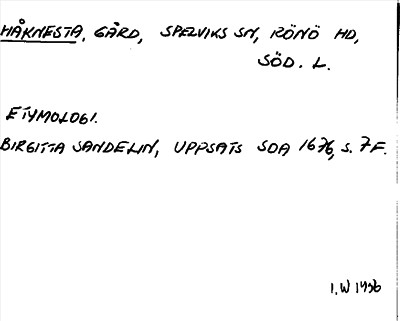 HÅKNESTA, GÅRD, SPELVIKS SN, RÖNÖ HD,
SÖD. L.
ETYMOLOGI.
BIRGITTA SANDELIN, UPPSATS SOA 1676, S. 7 F.
I.W 1956